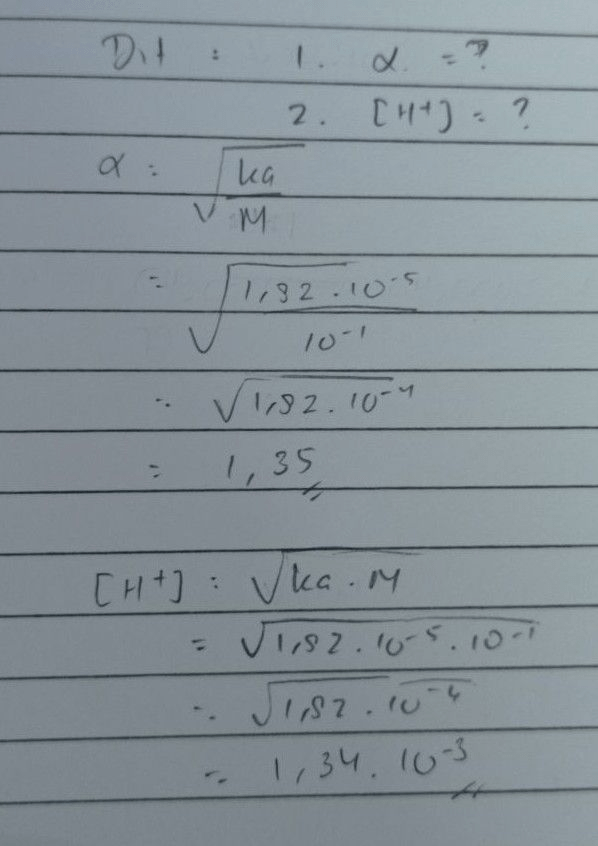 Dit : 1. α = ?
2. [H+] = ?
α = √ka/M
= √1,82 . 10⁻⁵ / 10⁻¹
= √1,82 . 10⁻⁴
= 1,35
[H+] : √ka . M
= √1,82 . 10⁻⁵ . 10⁻¹
= √1,82 . 10⁻⁶
= 1,34 . 10⁻³